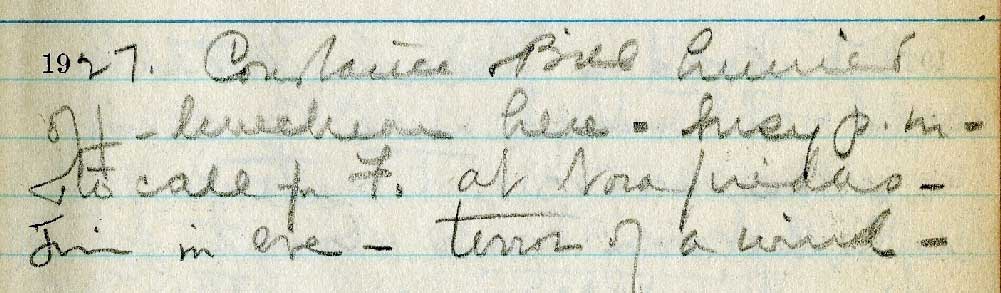 1927. Constance & Bill hurried
off - luncheon here - busy p.m. -
to call for F. at Nora
Jim in eve - terror of a wind -